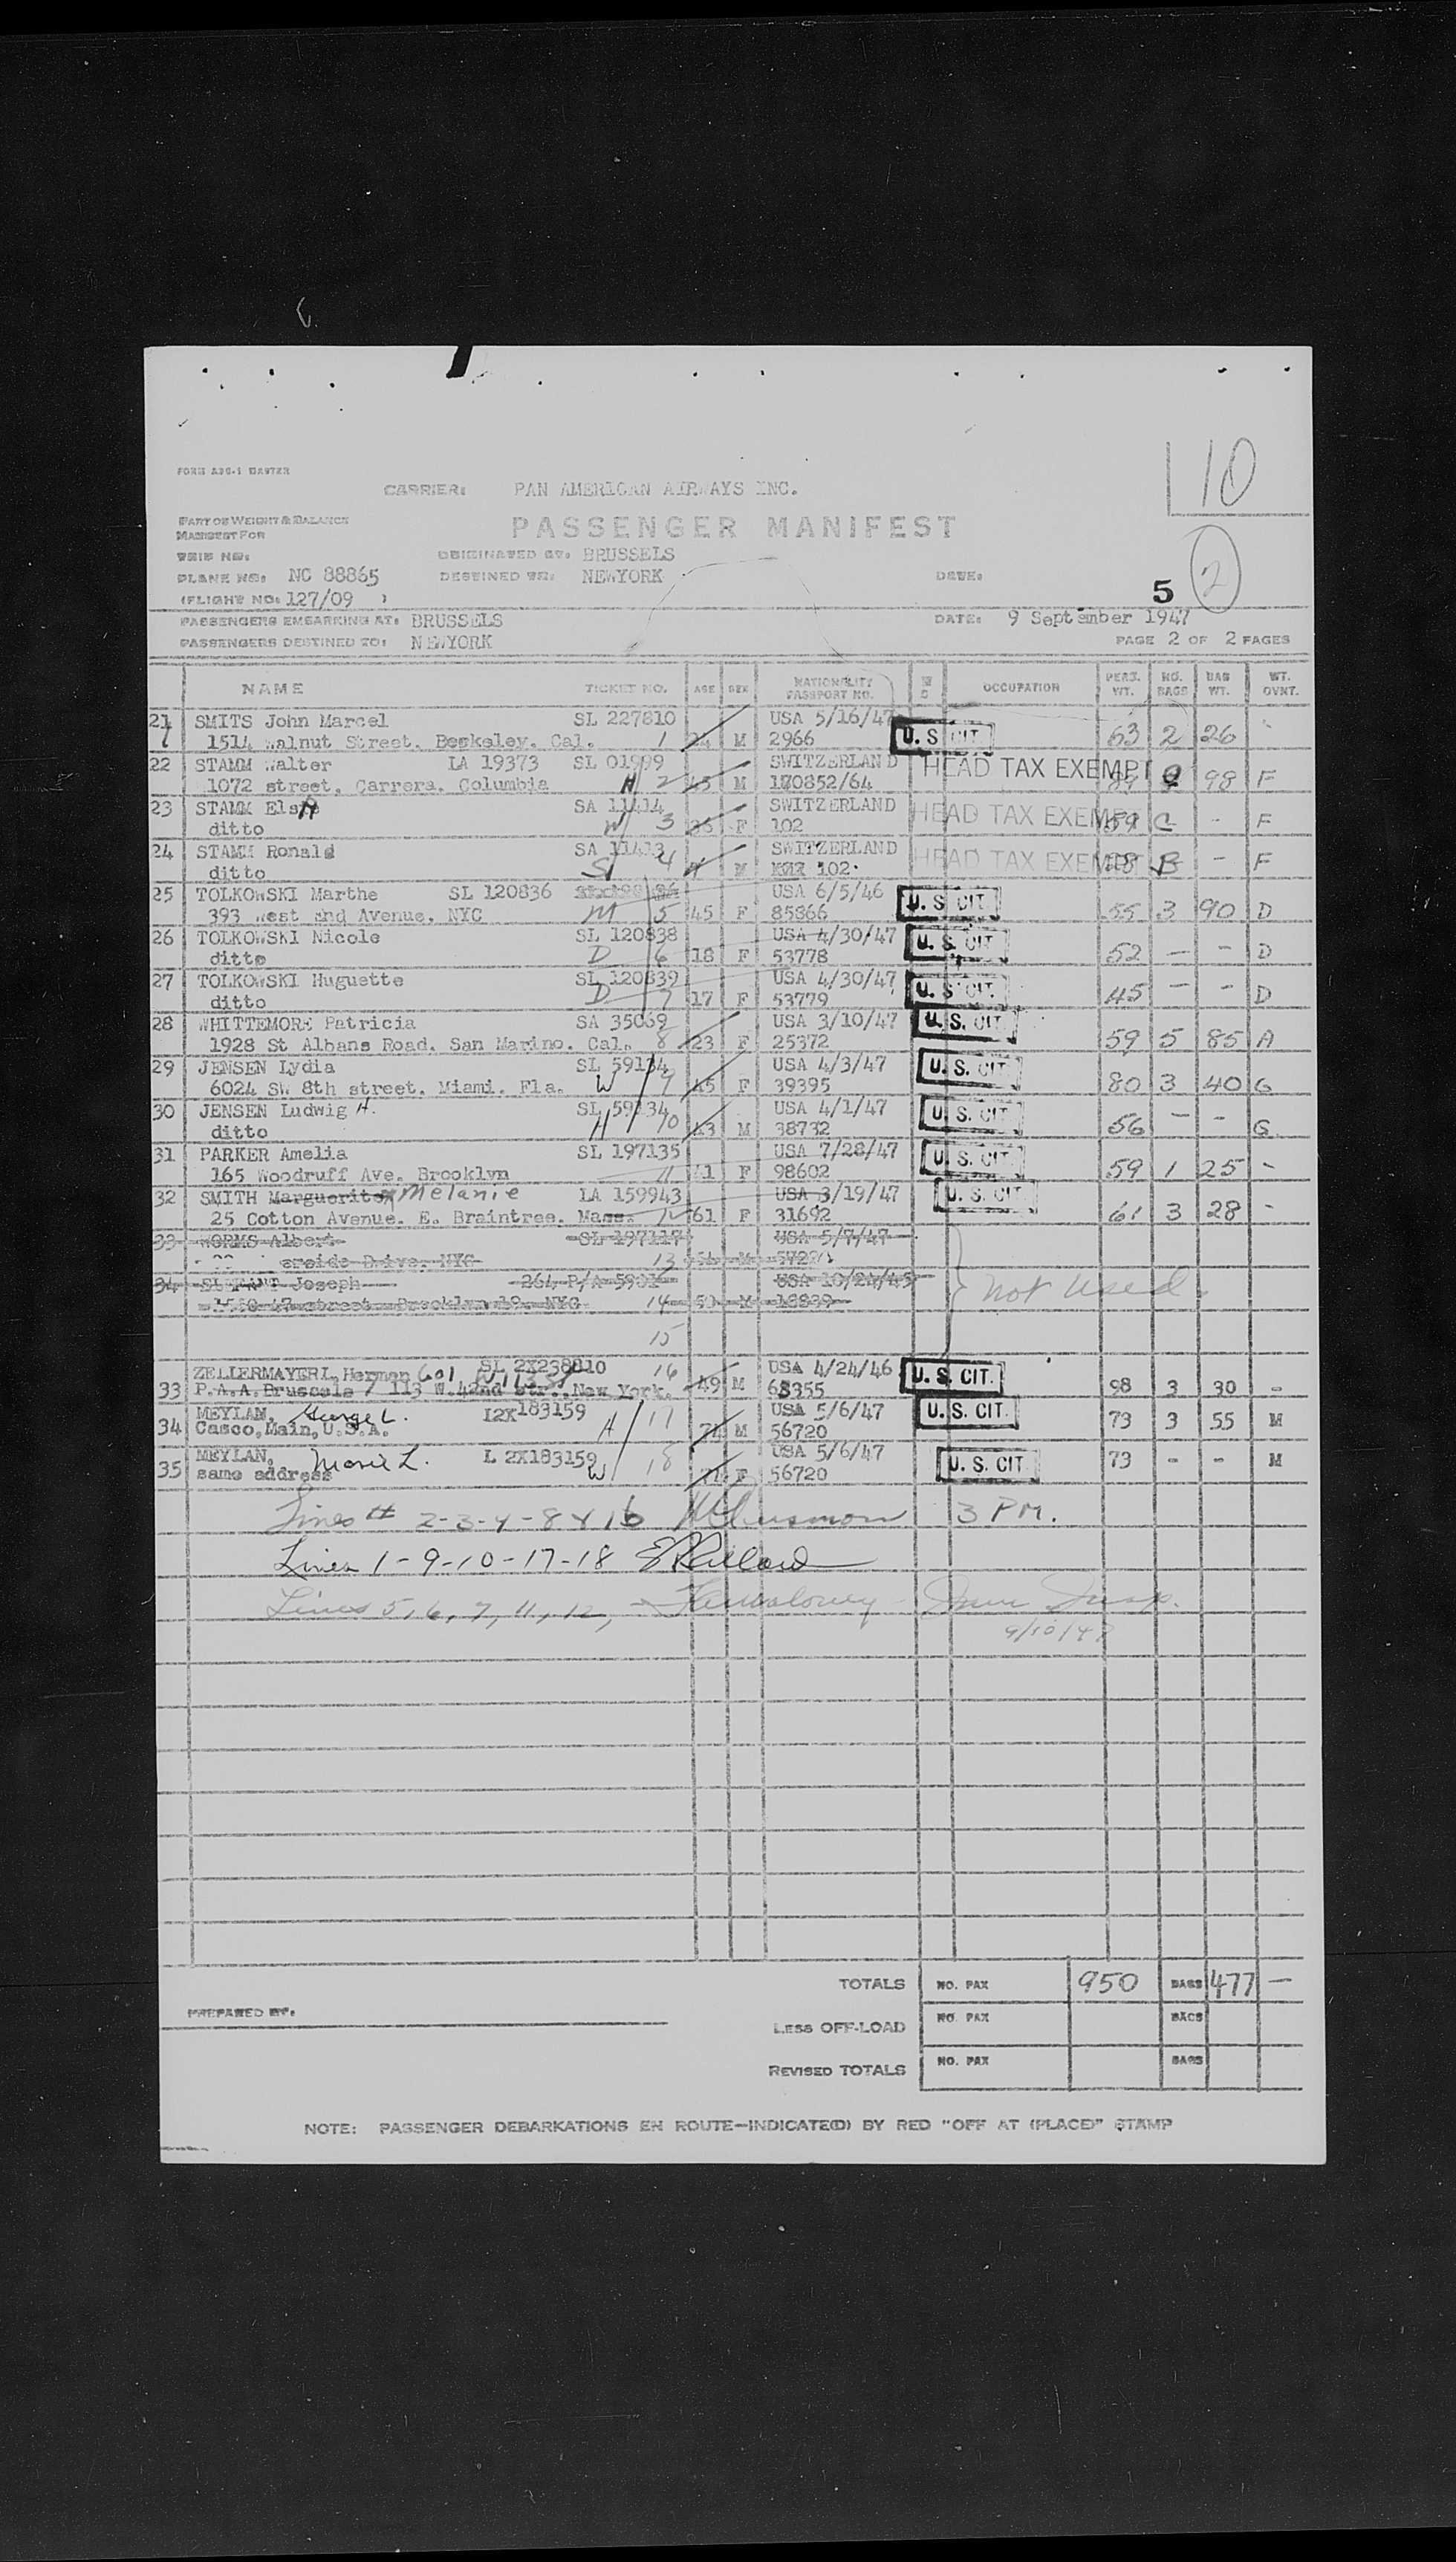 10
FORM ADS-1 MASTER
CARRIER: PAN AMERICAN AIRWAYS INC.
PART OF WEIGHT & BALANCE
MANIFEST FOR
PASSENGER MANIFEST
TRIP NO:
ORIGINATED AT: BRUSSELS
PLANE NO: NC 88865
DESTINED TO: NEWYORK
DATE:
5 2
(FLIGHT NO: 127/09 )
PASSENGERS EMBARKING AT: BRUSSELS
DATE: 9 September 1947
PASSENGERS DESTINED TO: NEWYORK
PAGE 2 OF 2 PAGES
NAME TICKET NO. AGE SEX NATIONALITY PASSPORT NO. OCCUPATION PERS. WT. NO. BAGS BAG WT. WT. OVNT.
21 SMITS John Marcel SL 227810 USA 5/16/47
1514 Walnut Street. Beskeley. Cal. 1 M 2966 U. S. CIT. 63 2 26
22 STAMM Walter LA 19373 SL 01999 SWITZERLAND HEAD TAX EXEMPT
1072 street. Carrera. Columbia H 2 45 M 170852/64 98 F
23 STAMM Elsa SA 11414 SWITZERLAND HEAD TAX EXEMPT
ditto W 3 F 102 59 - F
24 STAMM Ronald SA 11413 SWITZERLAND HEAD TAX EXEMPT
ditto S 4 M 102. - F
25 TOLKOWSKI Marthe SL 120836 USA 6/5/46 U. S. CIT.
393 West End Avenue. NYC M 5 45 F 85866 55 3 90 D
26 TOLKOWSKI Nicole SL 120838 USA 4/30/47 U. S. CIT.
ditto D 6 18 F 53778 52 - - D
27 TOLKOWSKI Huguette SL 120839 USA 4/30/47 U. S. CIT.
ditto D 7 17 F 53779 45 - - D
28 WHITTEMORE Patricia SA 35069 USA 3/10/47 U. S. CIT.
1928 St Albans Road. San Marino. Cal. 8 23 F 25372 59 5 85 A
29 JENSEN Lydia SL 59134 USA 4/3/47 U. S. CIT.
6024 SW 8th street. Miami. Fla. W 9 45 F 39395 80 3 40 G
30 JENSEN Ludwig H. SL 59134 USA 4/1/47 U. S. CIT.
ditto H 10 43 M 38732 56 - - G
31 PARKER Amelia SL 197135 USA 7/28/47 U. S. CIT.
165 Woodruff Ave. Brooklyn 11 41 F 98602 59 1 25 -
32 SMITH Marguerite Melanie LA 159943 USA 3/19/47 U. S. CIT.
25 Cotton Avenue. E. Braintree. Mass. 12 61 F 31692 61 3 28 -
33 WORMS Albert SL 197117 USA 5/7/47
Drive. NYC 13 M
34 Joseph 264 P/A USA 10/24/45
47 street Brooklyn 19. NYC 14 50 M 18839
Not Used.
15
ZELLERMAYERL, Herman 601 SL 2X238810 16 USA 4/24/46 U. S. CIT.
33 P.A.A. Brussels / 113 W. 42nd str., New York. 49 M 68355 98 3 30 -
MEYLAN, George L. L2X183159 17 USA 5/6/47 U. S. CIT.
34 Casco, Main, U.S.A. H 71 M 56720 73 3 55 M
MEYLAN, Marie L. L 2X183159 18 USA 5/6/47
35 same address W 71 F 56720 U. S. CIT. 73 - - M
Lines # 2-3-4-8 & 16 3 PM.
Lines 1-9-10-17-18
Lines 5, 6, 7, 11, 12, Imm Insp.
9/10/47
TOTALS NO. PAX 950 BAGS 477 -
PREPARED BY:
LESS OFF-LOAD NO. PAX BAGS
REVISED TOTALS NO. PAX BAGS
NOTE: PASSENGER DEBARKATIONS EN ROUTE-INDICATE(D) BY RED "OFF AT (PLACE)" STAMP